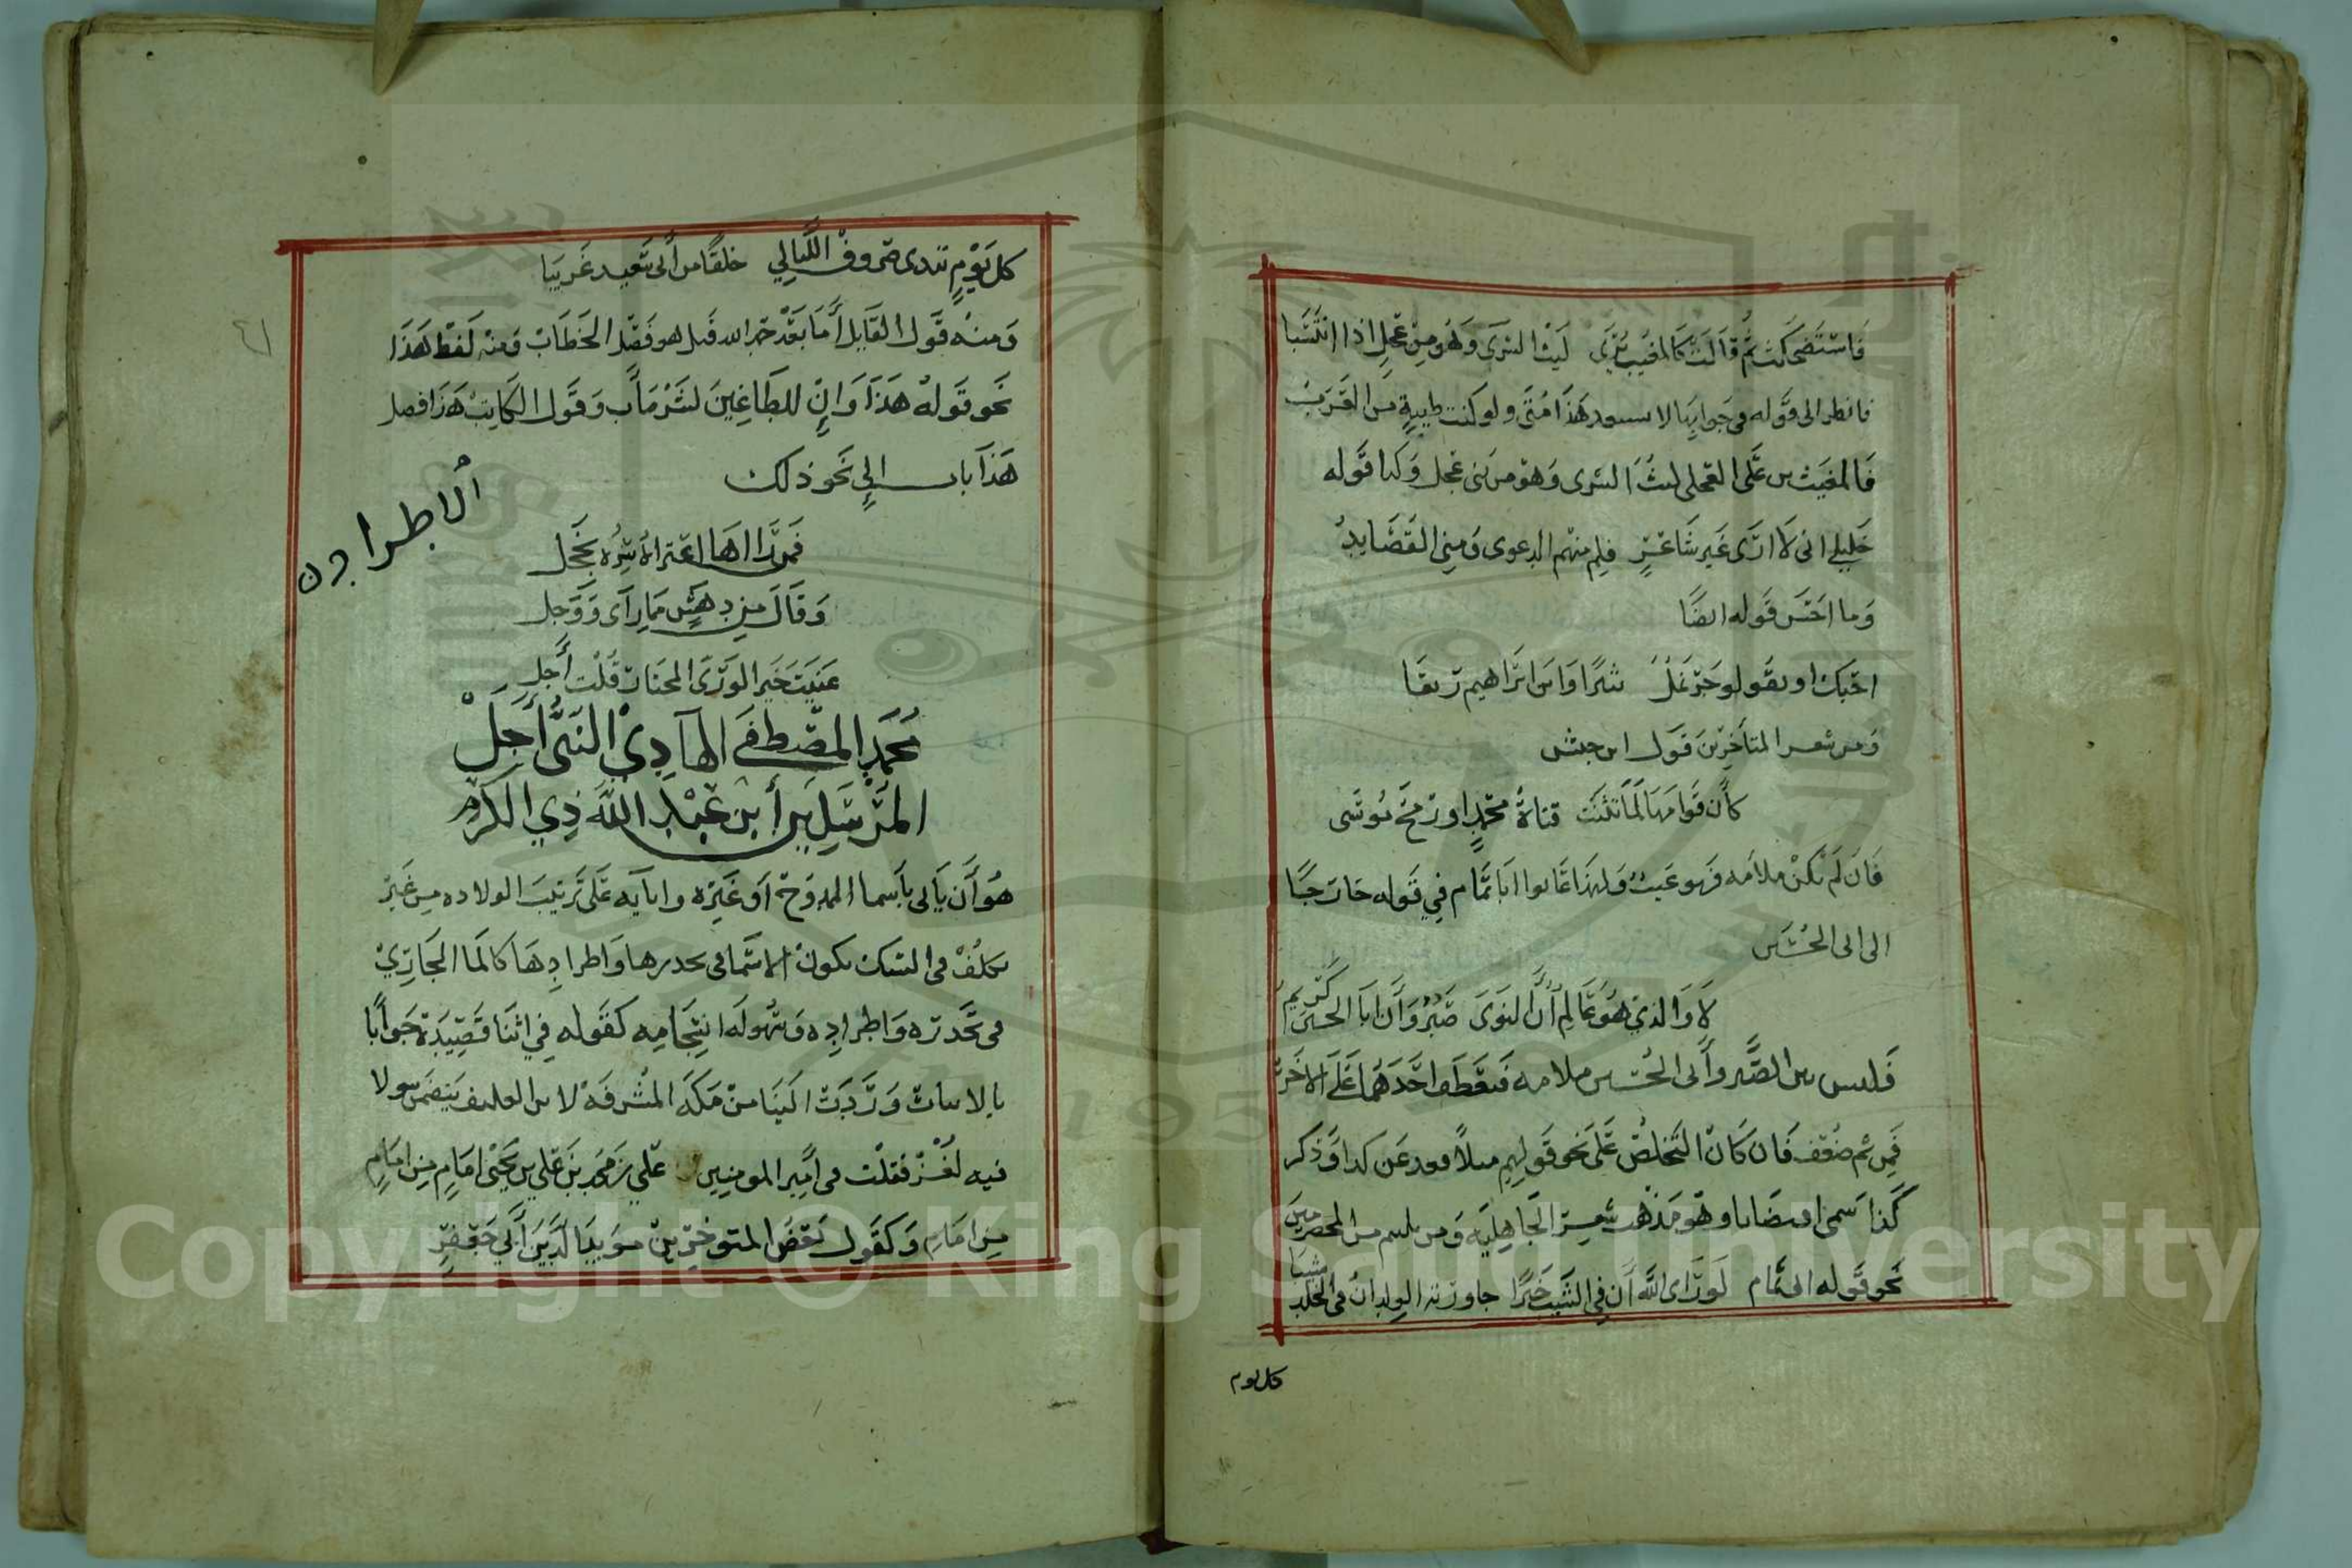 فَاسْتَضْحَكَتْ ثُمَّ قَالَتْ كَالمُغِيثِ يُرَى لَيْثَ الشرَى وَهُوَ مِنْ عِجْلٍ اذا انْتَسَبا
فانظر الى قوله في جوابها لا هذا متى ولو كنت من العرب
فَالمغيث بن عَلى العجلى ليث الشرى وَهوَ من بنى عجل وَكذا قوله
خَلِيلى انى لَا ارَى غَير شَاعِرٍ فلم منهم الدعوى وَمِنى القَصَايدُ
وَما احْسَن قَوله ايضًا
احبك او يقولوا جَرّ نَمْلٌ ثبيرًا وَابن ابْرَاهيم ريعَا
وَمن شعر المتأخرِينَ قَول ابن حبيش
كأن قَوَامَهَا لَمَّا تَثَنَّت قناةُ محمدٍ او رمح مُوسَى
فَان لَم تكنْ ملامَه فهو عَيبٌ وَلهذا عَابوا ابَا تمَّام فِي قَوله حَارجًا
الى ابى الحُسَين
لَا وَالذي هُوَ عَالِم أَنَّ النوَى صَبِرٌ وَأَن ابَا الحسَين كَرِيمُ
فَليس بين الصَّبر وأبى الحُسَين ملامه فعَطَف احَدَهُمَا عَلَى الاخَر
فمن ثم ضُعّف فَان كَانْ التخلصُ عَلى نَحو قَولِهِم مثلًا فعد عن كذا وَذكر
كَذا سمى اقتضَابا وَهوَ مَذْهب شعِر الجَاهِلِيَّه وَمن يليهم من المخضرمينَ
نَحو قَوله ابى تمَّام لَو رَأى اللَّه أَن فِي الشَّيب خَيرًا جاورته الولدانُ في الخُلد شيبَا
كل يوم
٤١
كل يَوْمٍ تبدى صُرُوفُ اللَّيالِي خلقًا من أَبى سَعِيد غَريبَا
وَمنهُ قَول القَايل أَمَا بَعْد حمد الله قيل هو فَصْل الخطَابْ وَمنْه لَفْظُ هَذَا
نَحو قَولهُ هَذَا وَإِنّ للطَّاغِينَ لَشَرَّ مَأَب وَقَول الكَاتِبْ هَذا فصل
هَذا باب إلى نَحو ذلك
الاطراد
فَمُذْ رَاهَا اعْتراهُ سِرُه بخَجل
وَقَالَ مِن دهَشٍ مِمَا رَأى وَوَجل
عَنَيت خَيرَ الوَرَى المختارَ قُلْت أَجلِ
مُحَمَّدِ المُصْطَفى الهَادِي النَّبيِّ أَجَلْ
المُرْسَلِينَ أبْن عَبْد اللَّه ذِي الكَرَمِ
هُوَ أَن يأتى بأسما الممدوح أَو غَيرِه وابآيه عَلى تَرتيبَ الولاده مِن غَير
تكلُفْ في السبك تكون الاسما في تحدرها واطرادِهَا كالمَا الجَارِي
في تحَدّره وَاطِرادِه وَسُهولَة انسِجَامِه كَقَوله فِي اثنَا قَصِيدة جَوابًا
بالابيات وَرَدَتْ الَينَا منْ مَكَه المُشرفَهْ يَتضَمن سولا
فيه لُغُزْ فقلْت في أَمِير المومنين عَلي بن مُحَمد بنَ عَلي بن يَحْيَى امَامٍ مِن امَامٍ
مِن امَامِ وَكقَول بَعْضُ المتوخِرِينْ مؤيدَ الدَّيْن أَبي جَعفرٍ